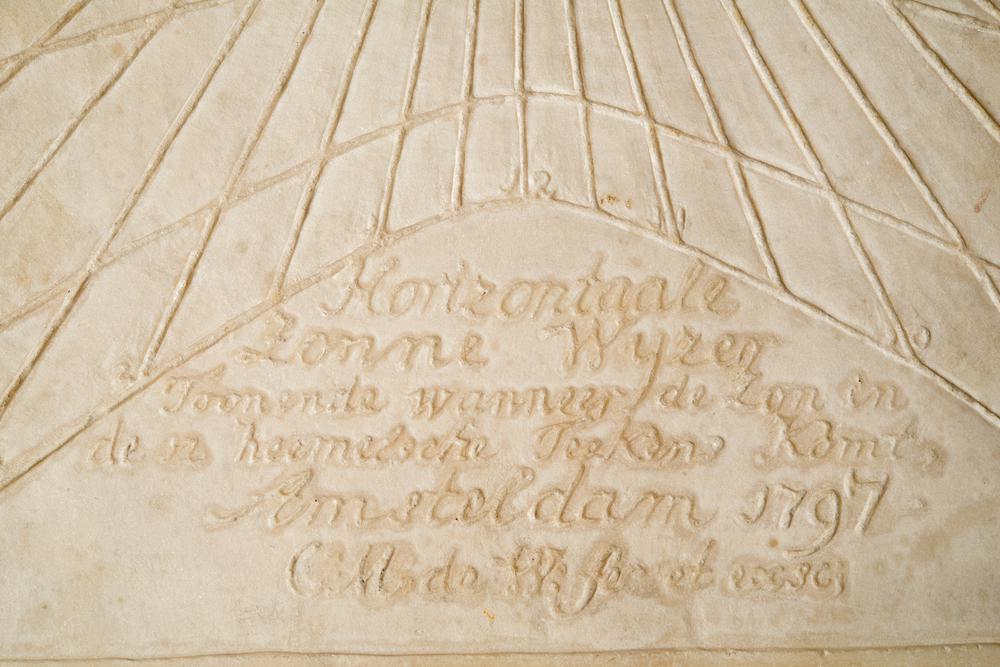 12
1
10
2
Horizontaale
Zonne Wyzer
Toonende wanneer de Zon in
de 12 heemelsche Teekens Komt,
Amsteldam 1797
C. M. de W. fec et exsc;